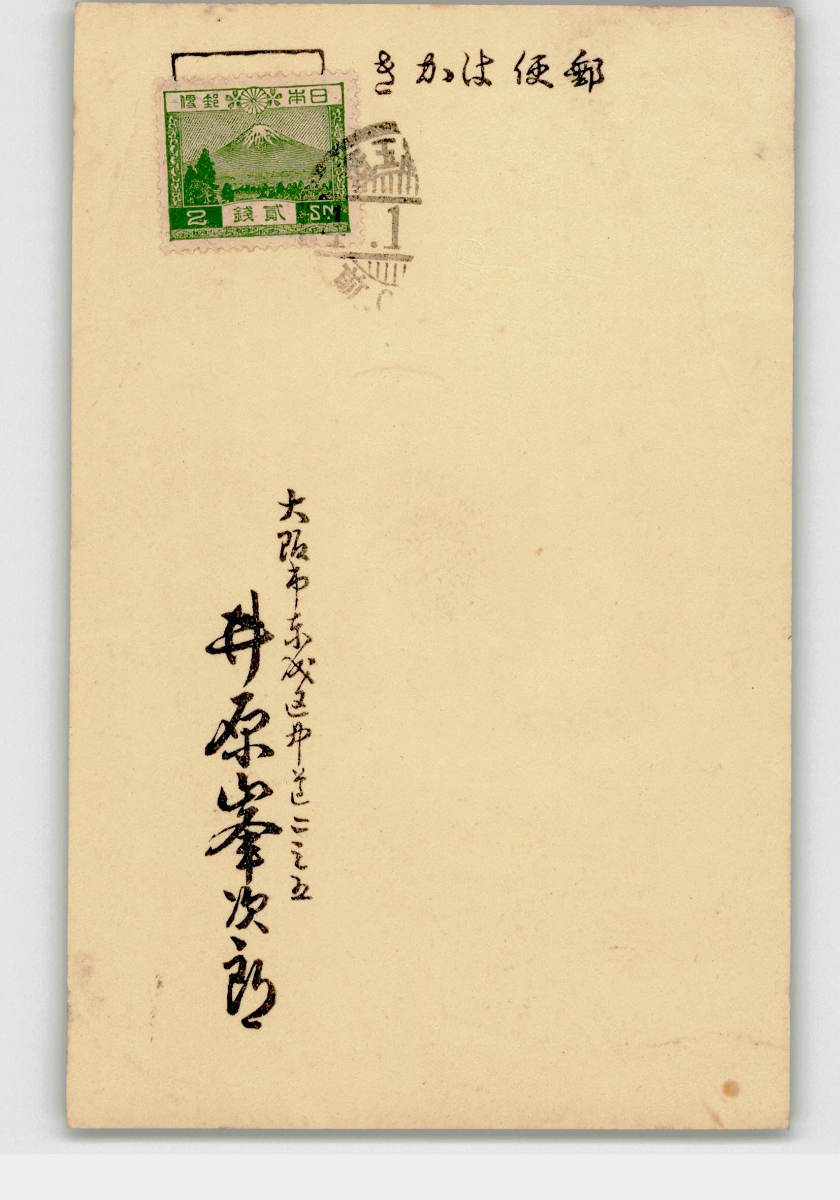 郵便はかき
日本郵便
2 貳錢 SN.
.1
大阪市東成区中道二之五
井原峯次郎